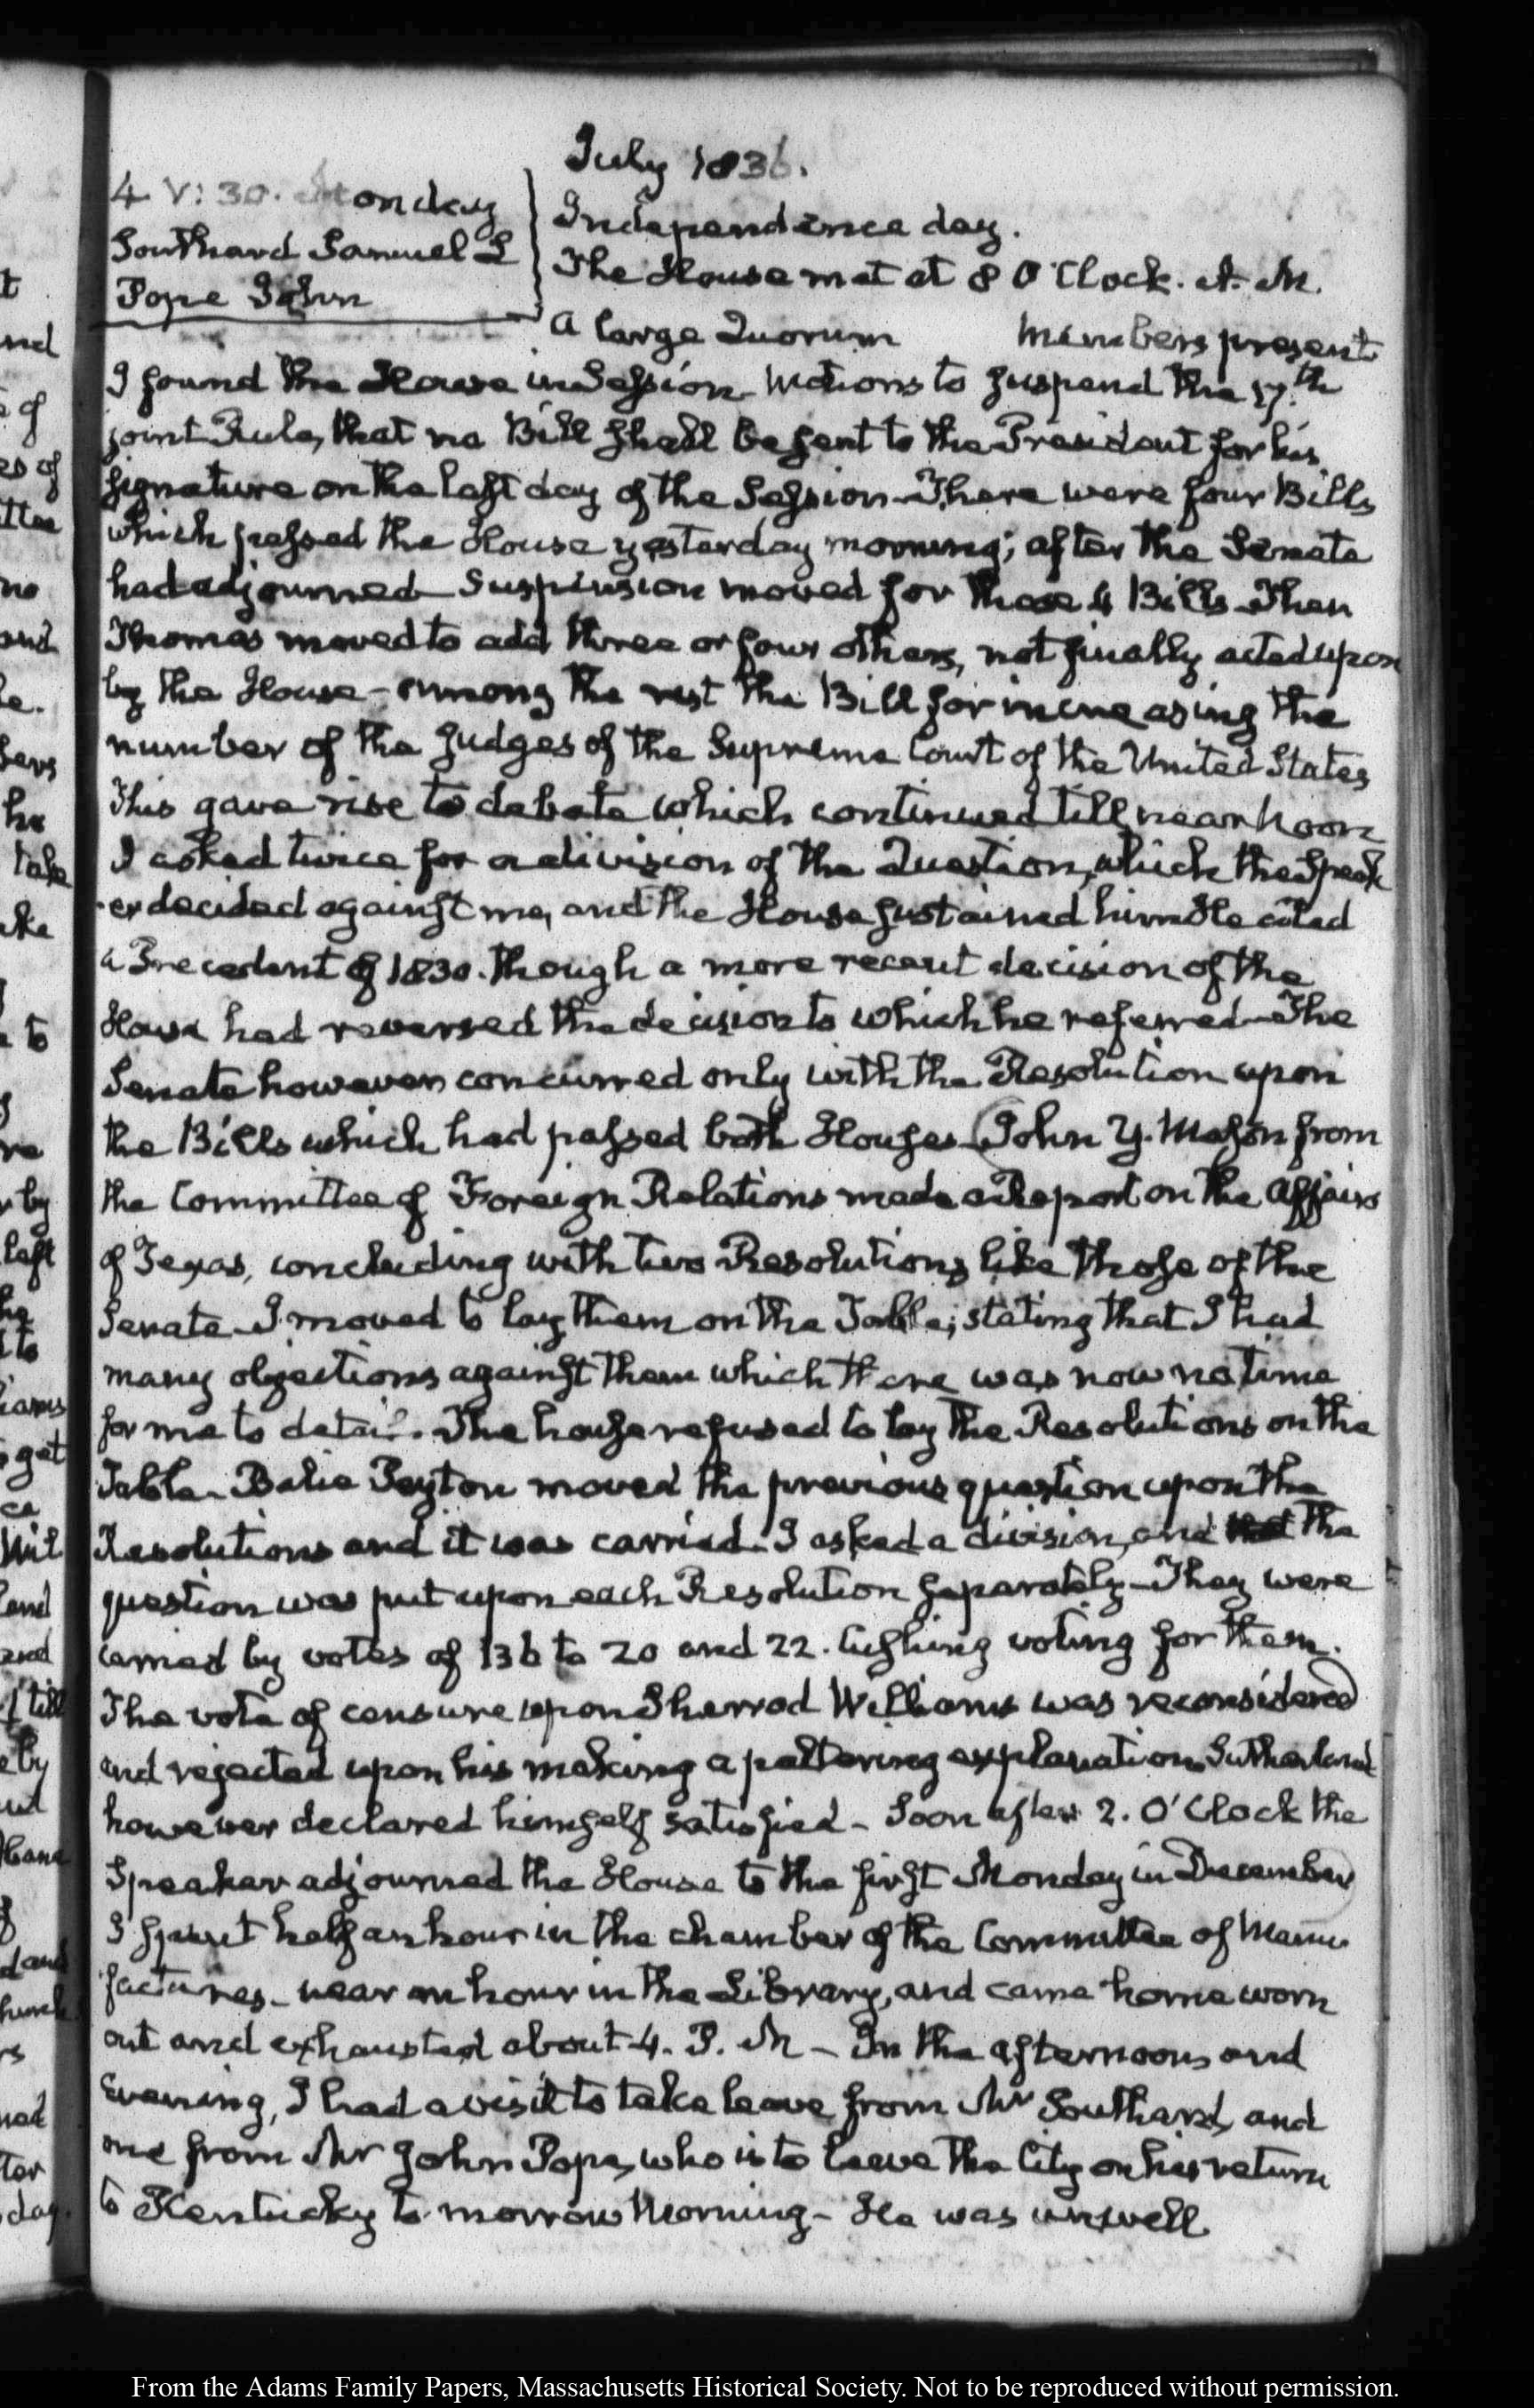 July 1836.
4 V: 30. Monday
Southard Samuel L
Pope John
Independence day.
The House met at 8 O'Clock. A. M.
a large Quorum Members present
I found the House in Session. Motions to suspend the 17.th
joint Rule, that no Bill shall be sent to the President for his
signature on the last day of the Session. There were four Bills
which passed the House yesterday morning; after the Senate
had adjourned. Suspension moved for those 4 Bills. Then
Thomas moved to add three or four others, not finally acted upon
by the House - among the rest the Bill for increasing the
number of the Judges of the Supreme Court of the United States
This gave rise to debate which continued till near Noon
I asked twice for a division of the Question, which the Speak
-er decided against me, and the House sustained him. He cited
a Precedent of 1830. though a more recent decision of the
House had reversed the decision to which he referred. The
Senate however concurred only with the Resolution upon
the Bills which had passed both Houses. John Y. Mason from
the Committee of Foreign Relations made a Report on the affairs
of Texas, concluding with two Resolutions like those of the
Senate. I moved to lay them on the Table; stating that I had
many objections against them which there was now no time
for me to detail. The house refused to lay the Resolutions on the
Table. Balie Peyton moved the previous question upon the
Resolutions and it was carried. I asked a division, and that the
question was put upon each Resolution separately. They were
carried by votes of 136 to 20 and 22. Cushing voting for them.
The vote of censure upon Sherrod Williams was reconsidered
and rejected upon his making a paltering explanation. Sutherland
however declared himself satisfied - Soon after 2. O'Clock the
Speaker adjourned the House to the first Monday in December
I spent half an hour in the chamber of the Committee of Manu
factures - near an hour in the Library, and came home worn
out and exhausted about 4. P. M - In the afternoon and
Evening, I had a visit to take leave from Mr Southard, and
one from Mr John Pope, who is to leave the City on his return
to Kentucky to morrow Morning - He was unwell
nd
of
es of
ttee
no
and
le.
he
take
to
re
by
last
to
get
ce
and
till
by
From the Adams Family Papers, Massachusetts Historical Society. Not to be reproduced without permission.